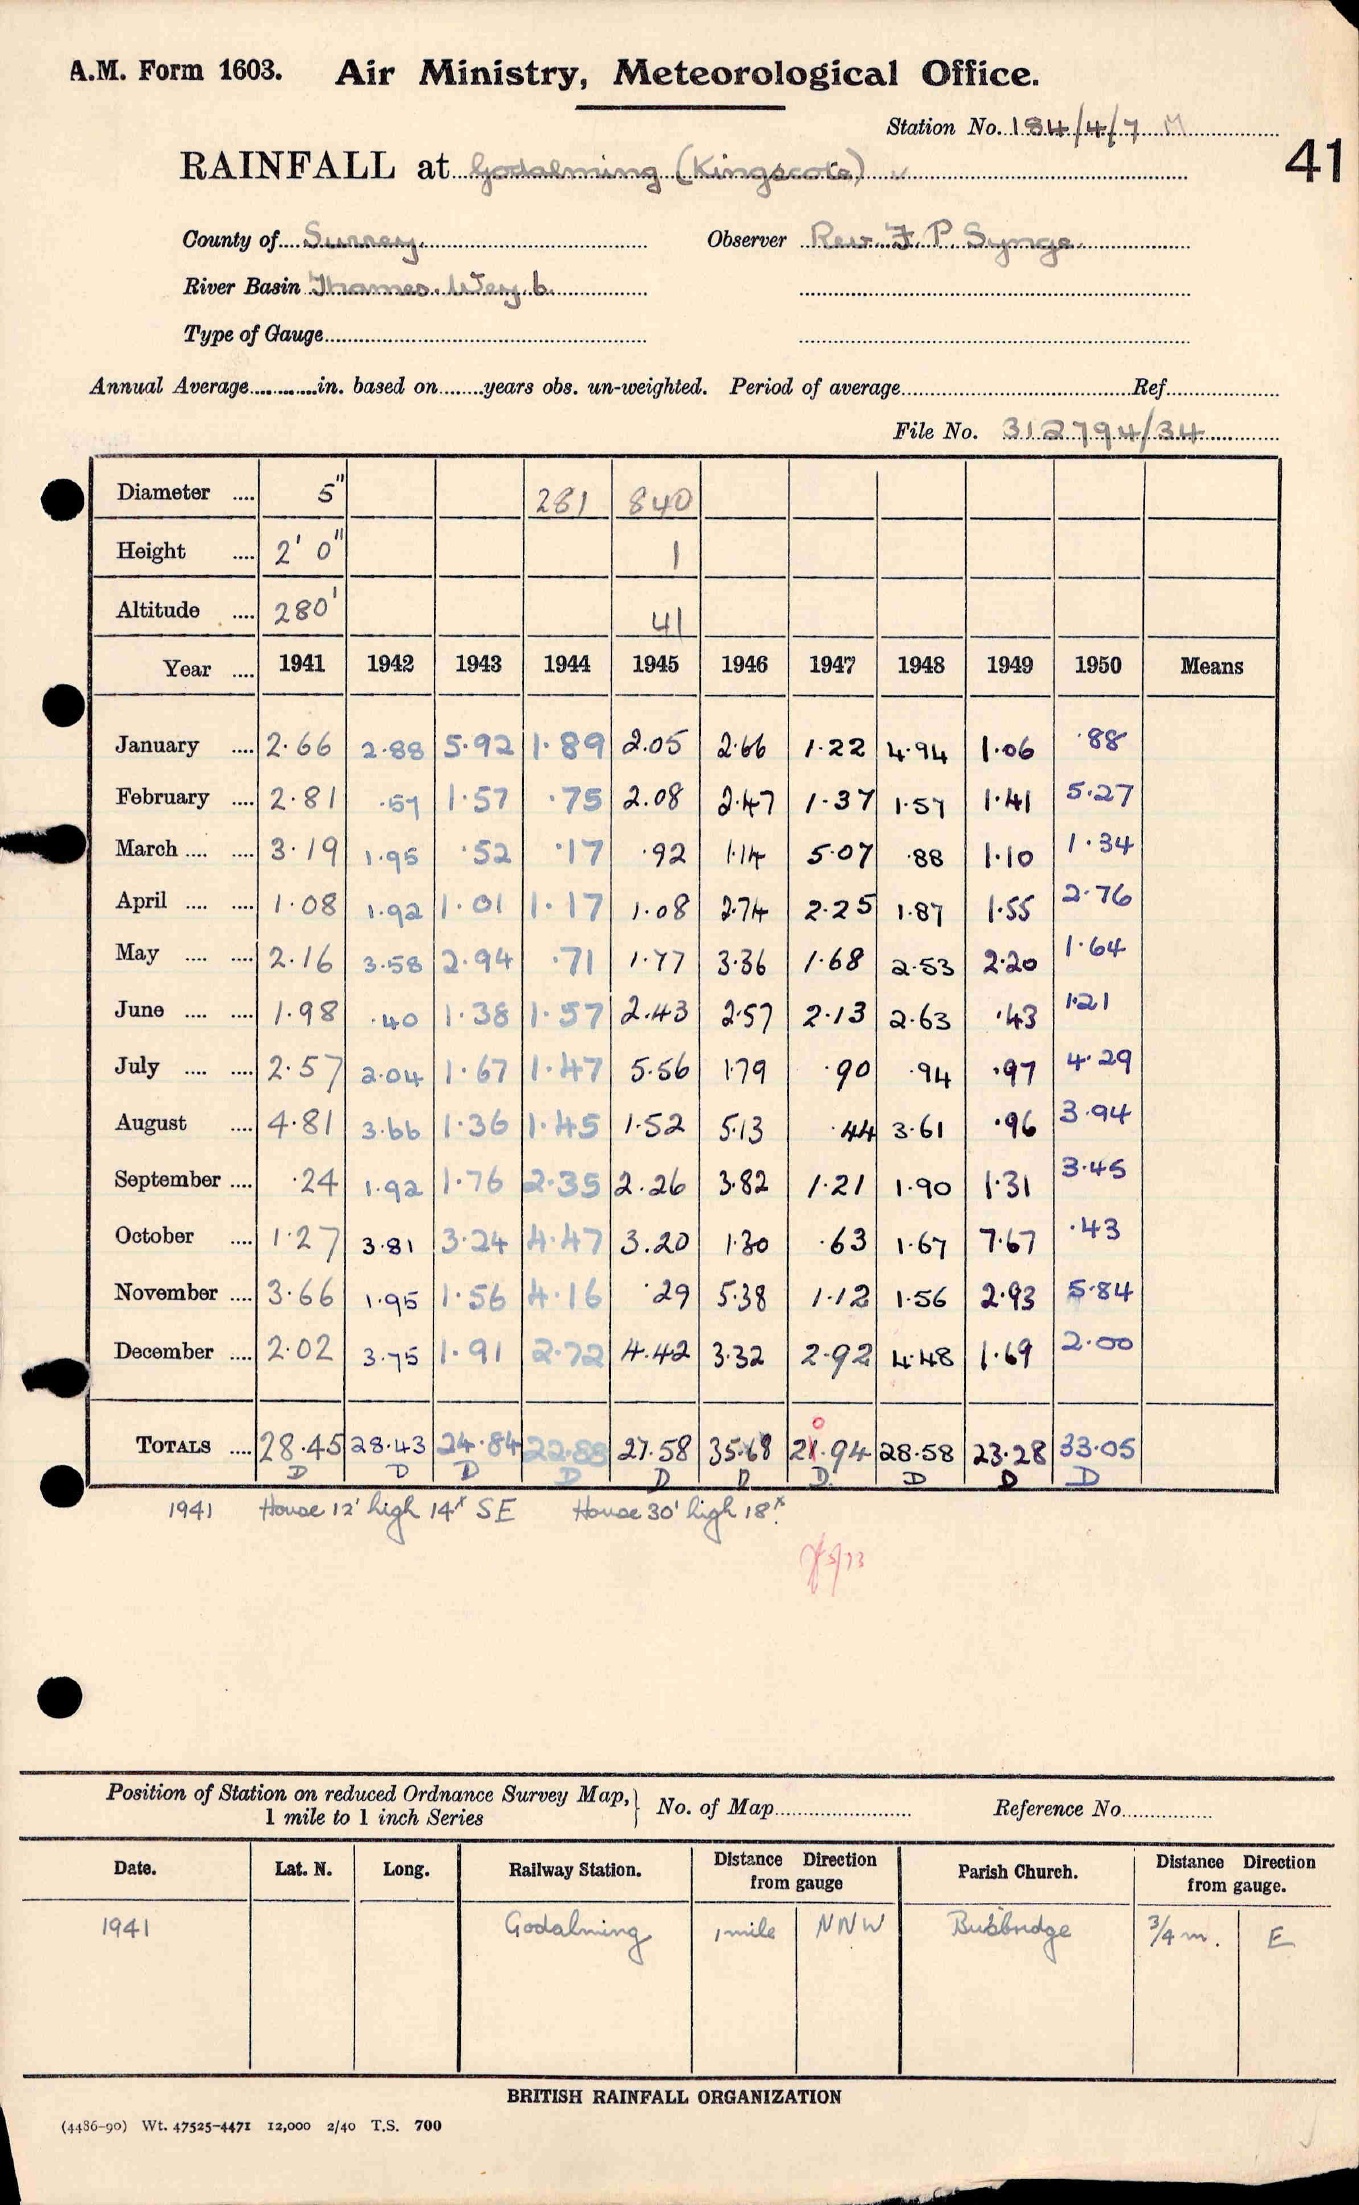 A.M. Form 1603. Air Ministry, Meteorological Office.
Station No. 184/4/7 M
RAINFALL at Godalming (Kingscote)
41
County of Surrey. Observer Rev. F. P. Synge.
River Basin Thames. Wey b.
Type of Gauge
Annual Average in. based on years obs. un-weighted. Period of average Ref.
File No. 312794/34
Diameter .... 5" 281 840
Height .... 2' 0" 1
Altitude .... 280' 41
Year .... 1941 1942 1943 1944 1945 1946 1947 1948 1949 1950 Means
January .... 2.66 2.88 5.92 1.89 2.05 2.66 1.22 4.94 1.06 .88
February .... 2.81 .57 1.57 .75 2.08 2.47 1.37 1.57 1.41 5.27
March .... .... 3.19 1.95 .52 .17 .92 1.14 5.07 .88 1.10 1.34
April .... .... 1.08 1.92 1.01 1.17 1.08 2.74 2.25 1.87 1.55 2.76
May .... .... 2.16 3.58 2.94 .71 1.77 3.36 1.68 2.53 2.20 1.64
June .... .... 1.98 .40 1.38 1.57 2.43 2.57 2.13 2.63 .43 1.21
July .... .... 2.57 2.04 1.67 1.47 5.56 1.79 .90 .94 .97 4.29
August .... 4.81 3.66 1.36 1.45 1.52 5.13 .44 3.61 .96 3.94
September .... .24 1.92 1.76 2.35 2.26 3.82 1.21 1.90 1.31 3.45
October .... 1.27 3.81 3.24 4.47 3.20 1.30 .63 1.67 7.67 .43
November .... 3.66 1.95 1.56 4.16 .29 5.38 1.12 1.56 2.93 5.84
December .... 2.02 3.75 1.91 2.72 4.42 3.32 2.92 4.48 1.69 2.00
0
TOTALS .... 28.45 28.43 24.84 22.88 27.58 35.68 21.94 28.58 23.28 33.05
D D D D D D D D D D
1941 House 12' high 14ˣ SE House 30' high 18ˣ.
Position of Station on reduced Ordnance Survey Map,
1 mile to 1 inch Series
No. of Map Reference No.
Date. Lat. N. Long. Railway Station. Distance Direction from gauge Parish Church. Distance Direction from gauge.
1941 Godalming 1 mile NNW Busbridge 3/4 m. E
BRITISH RAINFALL ORGANIZATION
(4486-90) Wt. 47525-4471 12,000 2/40 T.S. 700